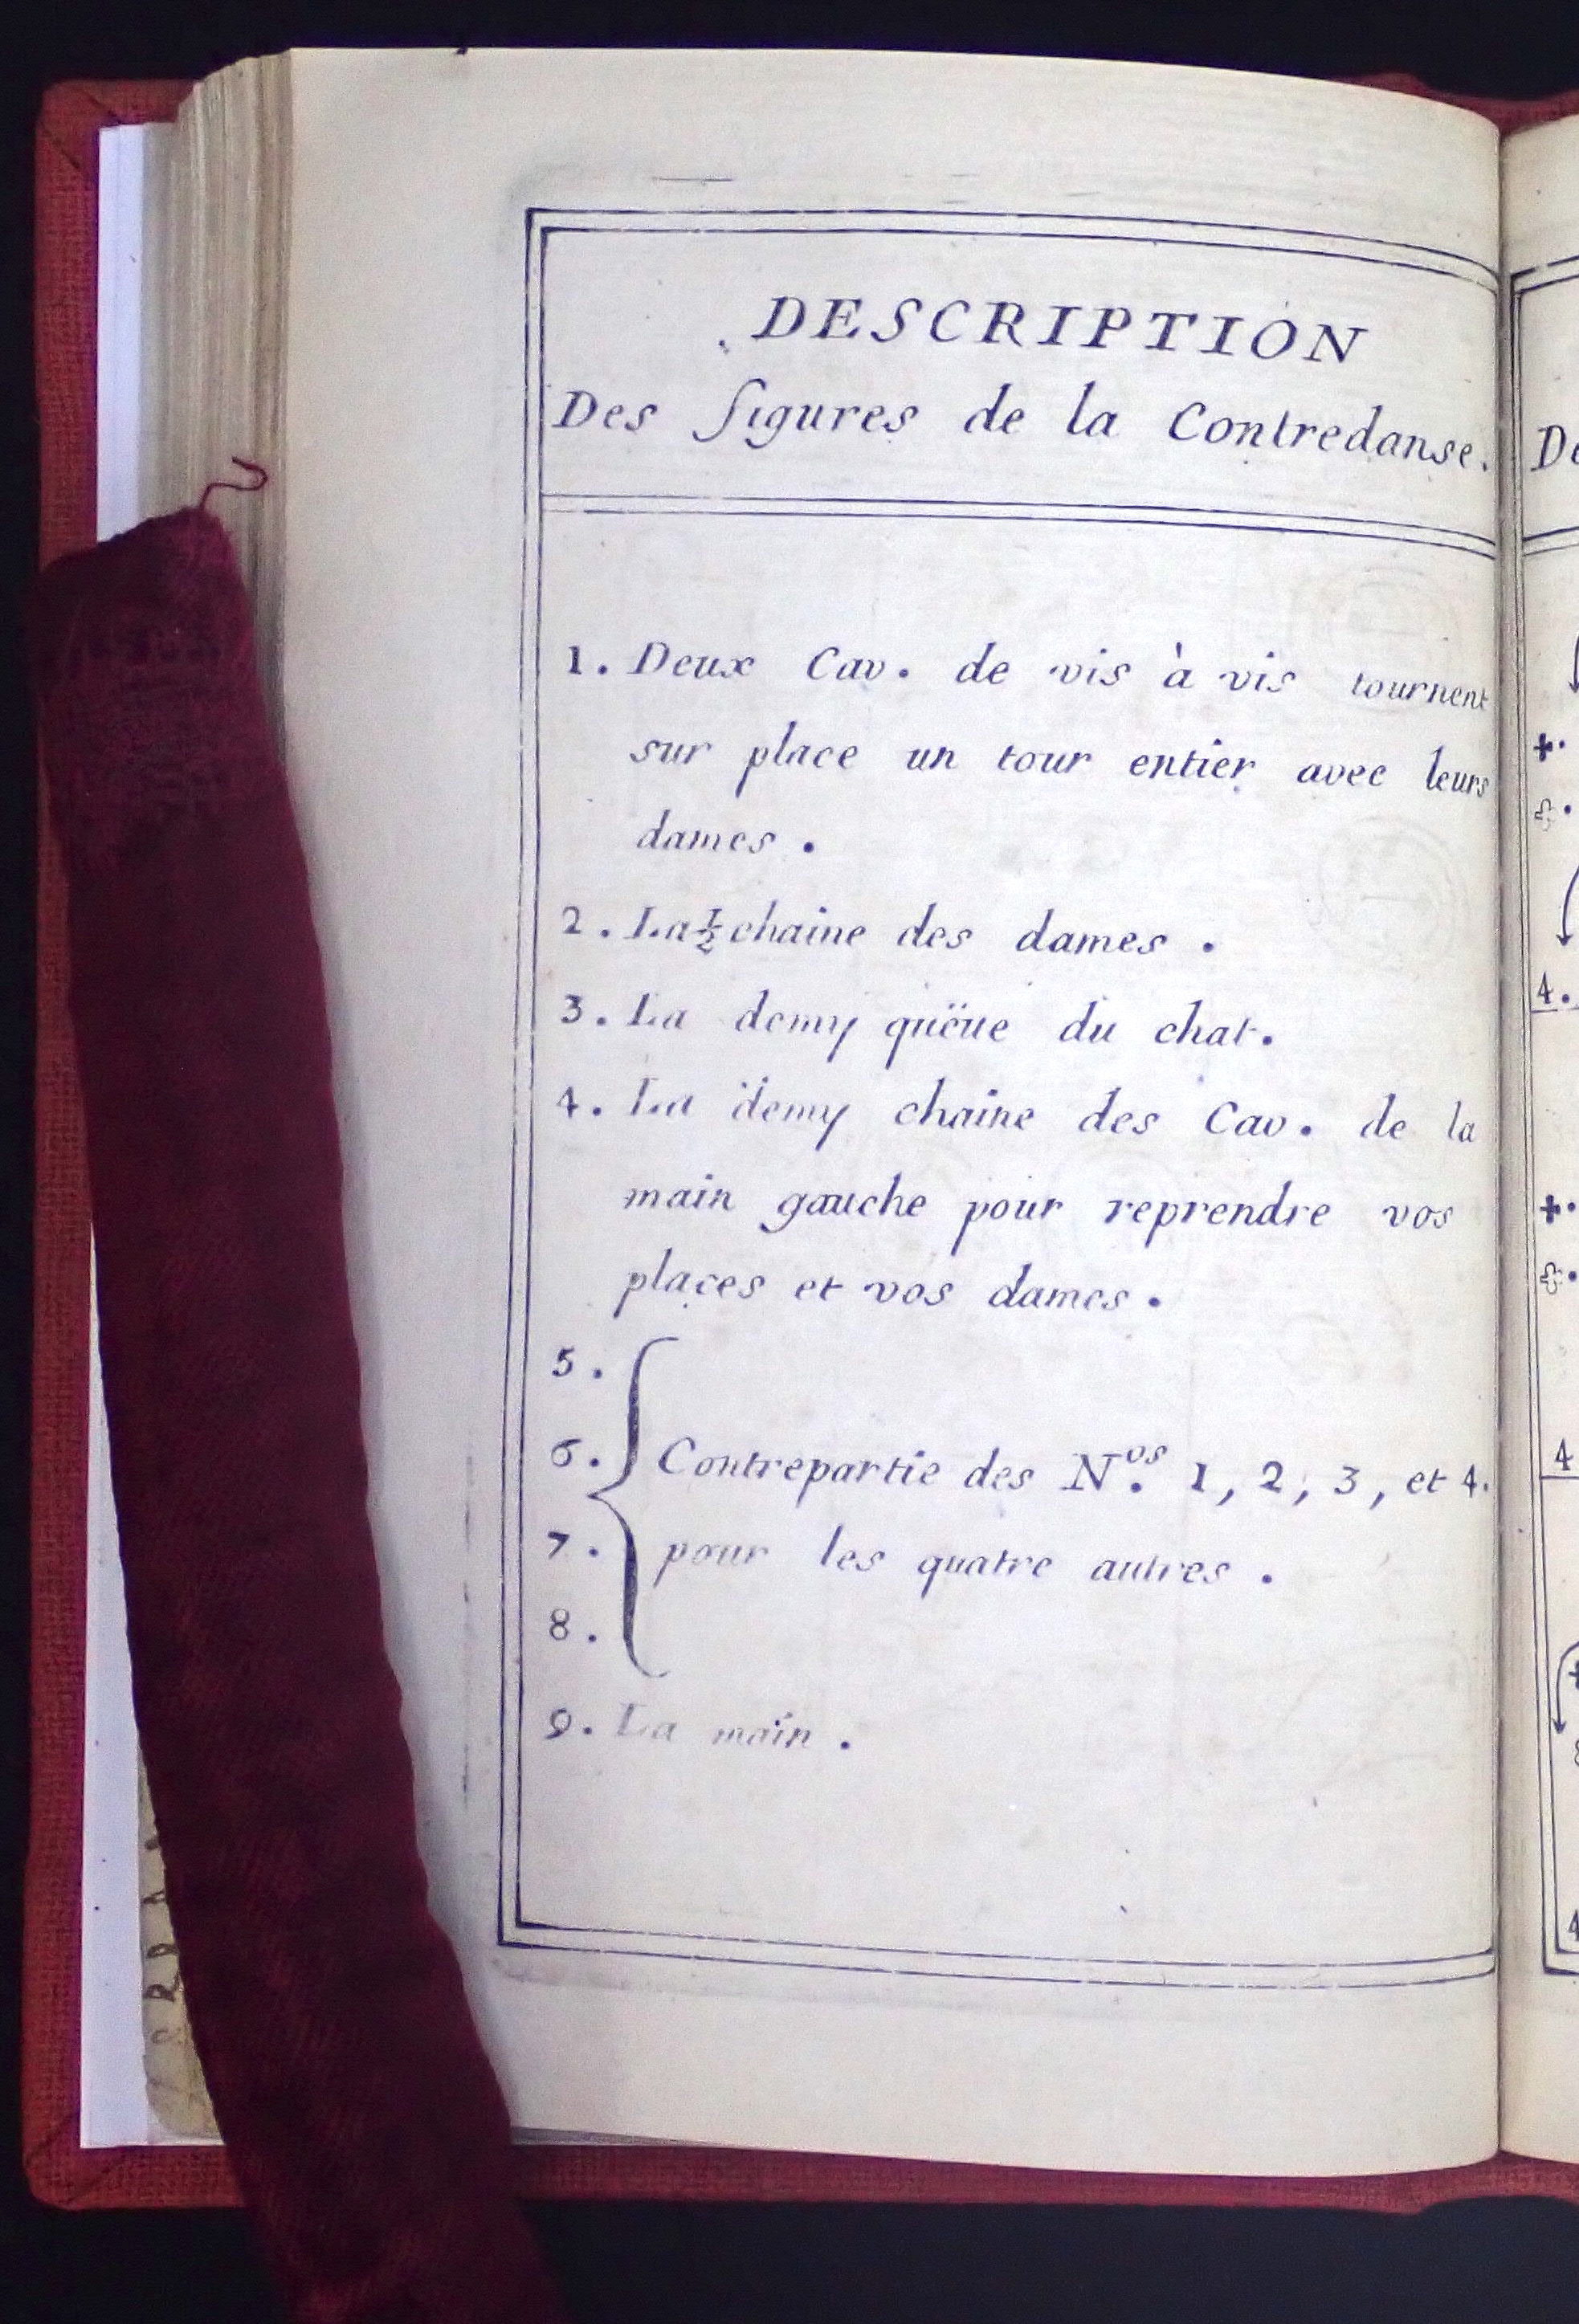 DESCRIPTION
Des figures de la Contredanse.
1. Deux Cav. de vis à vis tournent
sur place un tour entier avec leurs
dames.
2. La ½ chaine des dames.
3. La demy quëue du chat.
4. La demy chaine des Cav. de la
main gauche pour reprendre vos
places et vos dames.
5.
6. Contrepartie des N.os 1, 2, 3, et 4.
7. pour les quatre autres.
8.
9. La main.
De
+.
4.
+.
4
4